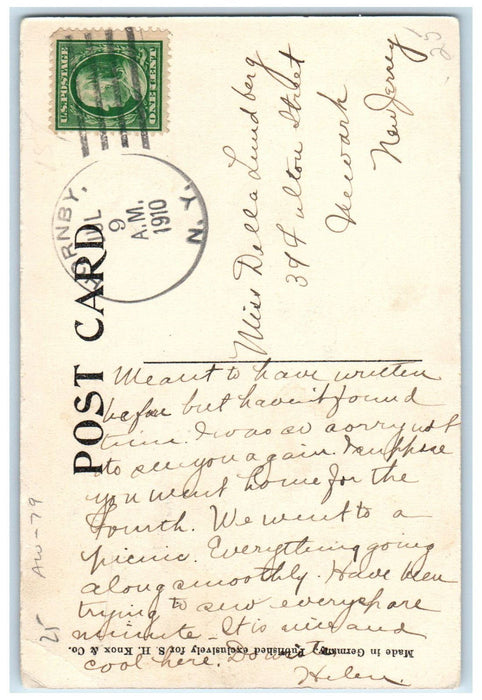 U.S. POSTAGE
ONE CENT
HORNBY,
JUL
9
A.M.
1910
N. Y.
POST CARD
Miss Della Lundberg
394 Fulton Street
Newark
New Jersey
25
Meant to have written
before but haven't found
time. I was so sorry not
to see you again. I suppose
you went home for the
Fourth. We went to a
picnic. Everything going
along smoothly. Have been
trying to sew every spare
minute - It is nice and
cool here. Do write
Helen.
AW-79
25
Made in Germany, Published exclusively for S. H. Knox & Co.